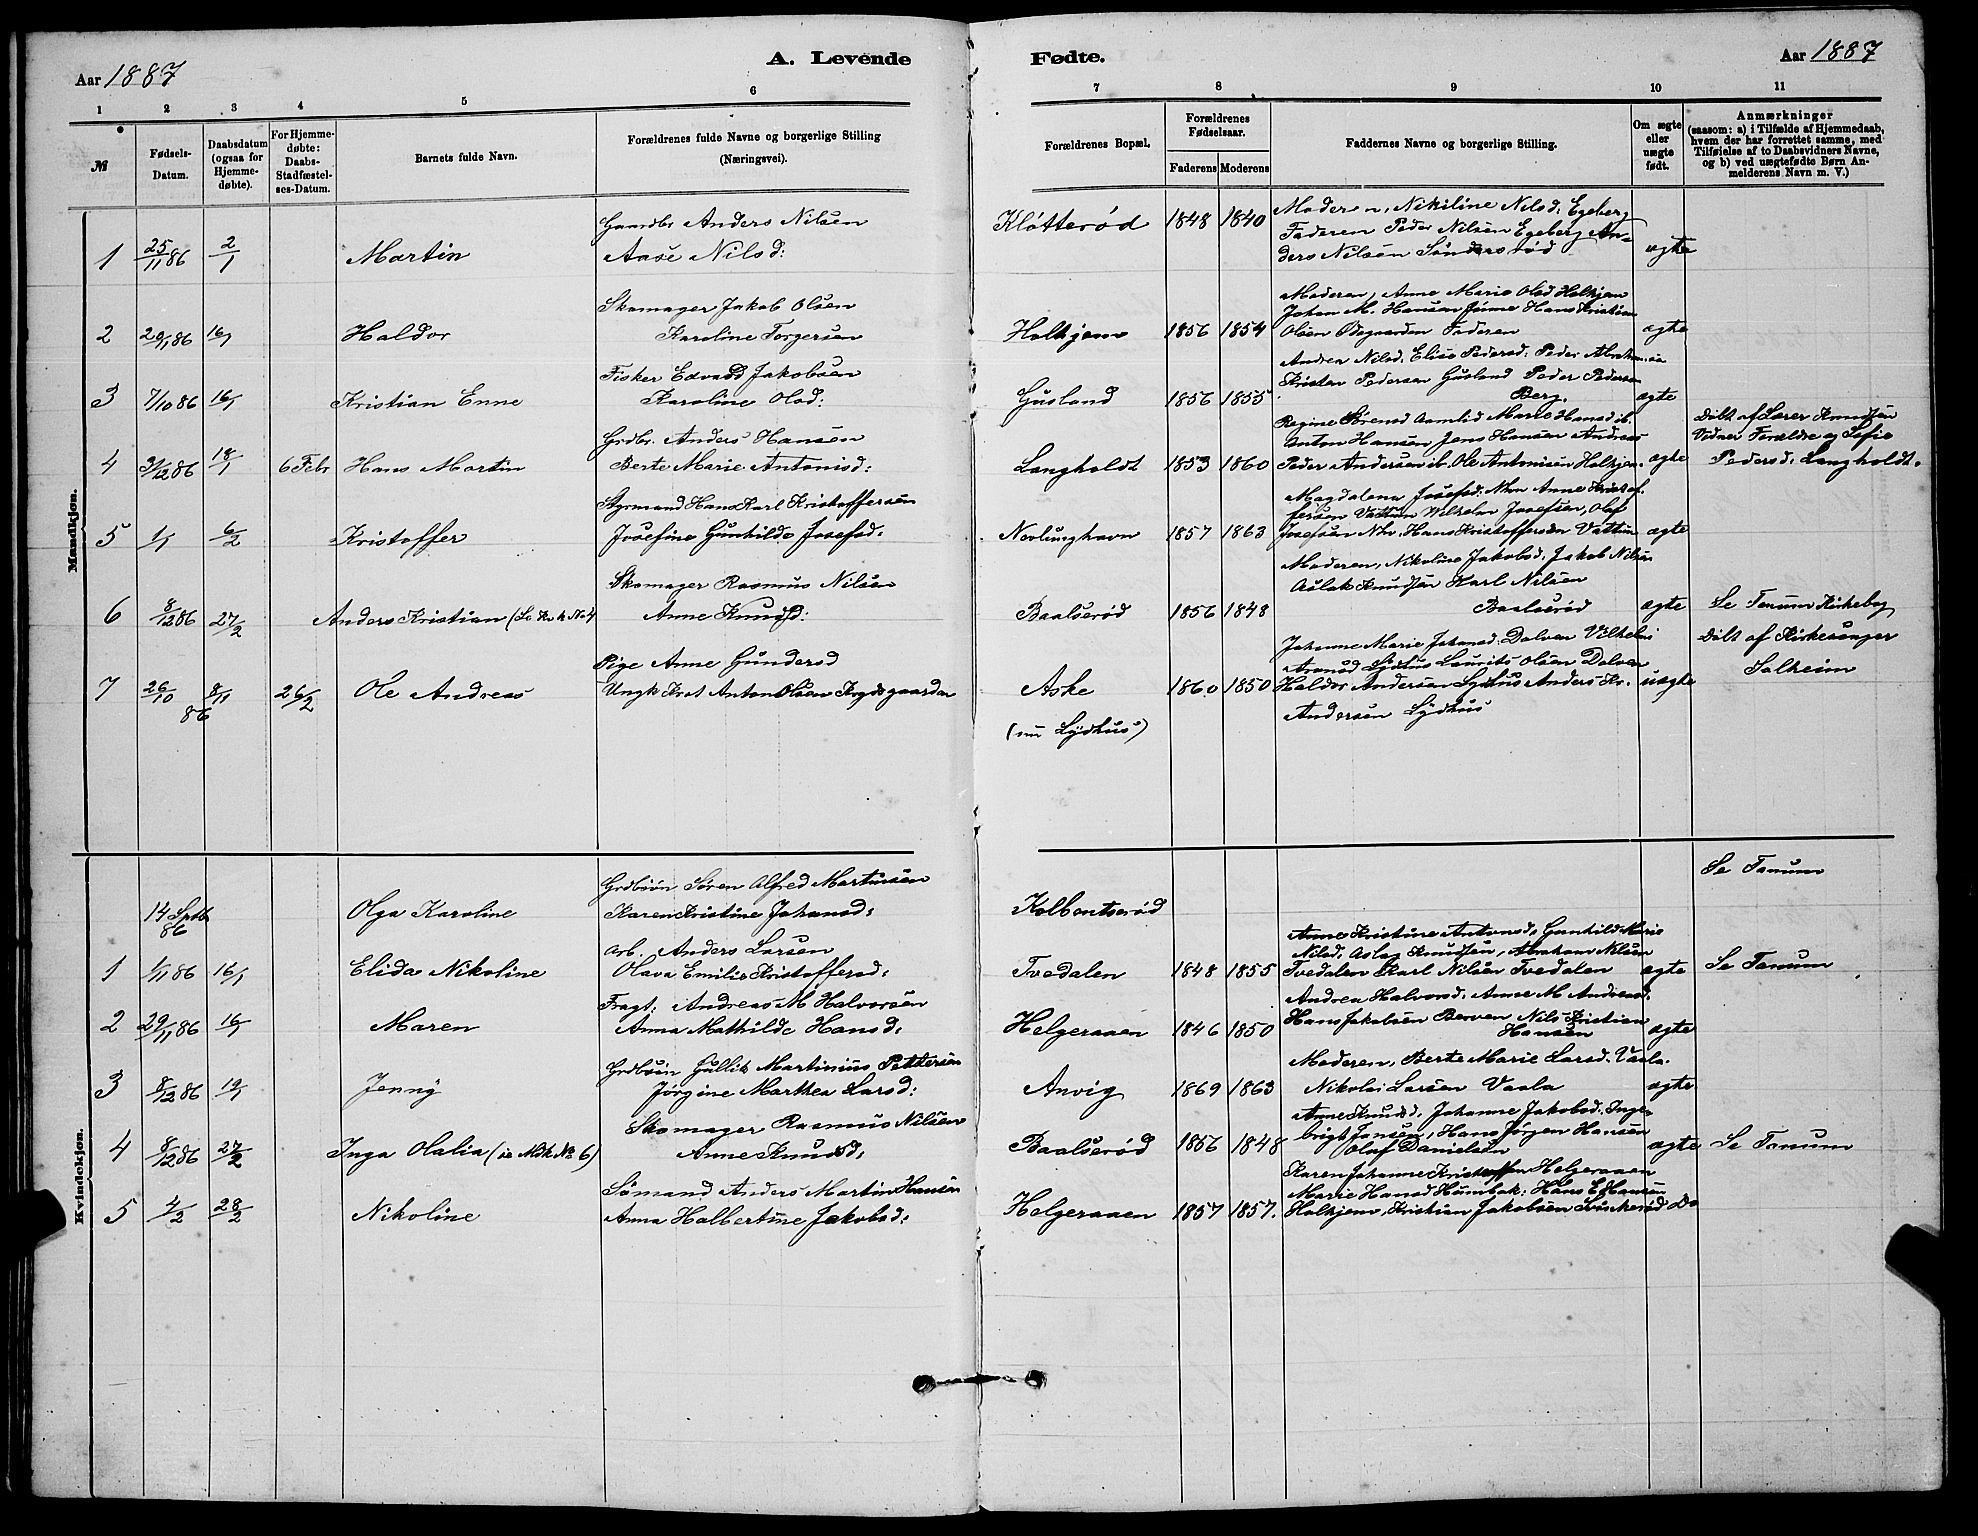 Aar 1887
A. Levende
Fødte.
Aar 1887
1 2 3 4 5 6 7 8 9 10 11
№
Fødsels-
Datum.
Daabsdatum
(ogsaa for
Hjemme-
døbte).
For Hjemme-
døbte:
Daabs-
Stadfæstel-
ses-Datum.
Barnets fulde Navn.
Forældrenes fulde Navne og borgerlige Stilling
(Næringsvei).
Forældrenes Bopæl.
Forældrenes
Fødselsaar.
Faderens Moderens
Faddernes Navne og borgerlige Stilling.
Om ægte
eller
uægte
født.
Anmærkninger
(saasom: a) i Tilfælde af Hjemmedaab,
hvem der har forrettet samme, med
Tilføielse af to Daabsvidners Navne,
og b) ved uægtefødte Børn An-
melderens Navn m. V.)
Mandkjøn.
Gaardbr Anders Nilsen
1 25/11 86 2/1 Martin Aase Nilsd:
Kløtterød 1848 1840
Moderen, Nikiline Nilsd. Egeberg
Faderen Peder Nilsen Egeberg An-
ders Nilsen Sønderstrød
ægte
Skomager Jakob Olsen
2 29/11 86 16/1 Haldor Karoline Torgersen
Holkjem 1856 1854
Moderen, Anne Marie Olsd Holkjem
Johan M. Hansen Hans Kristian
Olsen Øvegaarden Faderen
ægte
Fisker Edvard Jakobsen
3 7/10 86 16/1 Kristian Enne Karoline Olsd:
Gusland 1856 1855
Andrea Nilsd. Elise Pedersd. Peder Abrahamsen
Kristen Pedersen Gusland Peder Pedersen
Berg.
ægte
Grdbr. Anders Hansen
4 31/12 86 18/1 6 Febr Hans Martin Berte Marie Antonisd:
Langholdt 1853 1860
Regine Sørensd Marie Hansd ib.
Anton Hansen Jens Hansen Andreas
Peder Andersen ib. Ole Antonisen Holkjem.
ægte
Døbt af Lærer Knudsen
Vidner Forældre og Sofie
Pedersd. Langholdt.
Styrmand Hans Karl Kristoffersen
5 1/1 6/2 Kristoffer Josefine Gunhilde Josefsd:
Nevlunghavn 1857 1863
Magdalena Josefsd. Nhvn Anne Kristof-
fersen Vattum Wilhelm Josefsen, Olaf
Josefsen Nhv. Hans Kristoffersen Vattum
ægte
Skomager Rasmus Nilsen
6 8/12 86 27/2 Anders Kristian (Se Kvk № 4 Anne Knudsd:
Baalserød 1856 1848
Moderen, Nikoline Jakobsd. Jakob Nilsen
Aslak Knudsen Karl Nilsen
Baalserød
ægte
Se Tanum Kirkebog
Pige Anne Gundersd
7 26/10 8/11 86 26/2 Ole Andreas Ungk Krist Anton Olsen Frydsgaarden
Aske 1860 1850
(nu Lydhus)
Johanne Marie Johansd. Dolven Vilhelm
Lydhus Laurits Olsen Dolven
Haldor Andersen Lydhus Anders Kr.
Andersen Lydhus
uægte
Døbt af Kirkesanger
Solheim
Kvindekjøn.
Grdbsøn Søren Alfred Martinsen
14 Sptb 86 Olga Karoline Karen Kristine Johansd:
Kolbentserød
Se Tanum
arb. Anders Larsen
1 1/11 86 16/1 Elida Nikoline Olava Emilie Kristoffersd:
Tvedalen 1848 1855
Anne Kristine Antonsd, Gunhild Marie
Nilsd, Aslag Knudsen, Abraham Nilsen
Tvedalen Karl Nilsen Tvedalen
ægte
Se Tanum
Fragt: Andreas M Halvorsen
2 29/11 86 16/1 Maren Anna Mathilde Hansd:
Helgeraaen 1846 1850
Andrea Halvorsd. Anne M Andreasd.
Hans Jakobsen Berven Nils Kristian
Hansen
ægte
Grdbsøn Gullik Martinius Pettersen
3 8/12 86 19/1 Jenny Jørgine Marthea Larsd:
Anvig 1869 1863
Moderen, Berte Marie Larsd. Vaala.
Nikolai Larsen Vaala
ægte
Skomager Rasmus Nilsen
4 8/12 86 27/2 Inga Olalia (se Mdk № 6) Anne Knudsd:
Baalserød 1856 1848
Anne Knudsd. Johanne Jakobsd. Inge-
brigt Jensen, Hans Jørgen Hansen
Olaf Danielsen
ægte
Se Tanum
Sømand Anders Martin Hansen
5 4/2 28/2 Nikoline Anna Halbertine Jakobsd:
Helgeraaen 1857 1857.
Karen Johanne Kristoffersen Helgeraaen
Marie Hansd Humbak: Hans E Hansen
Holkjem, Kristian Jakobsen
Do